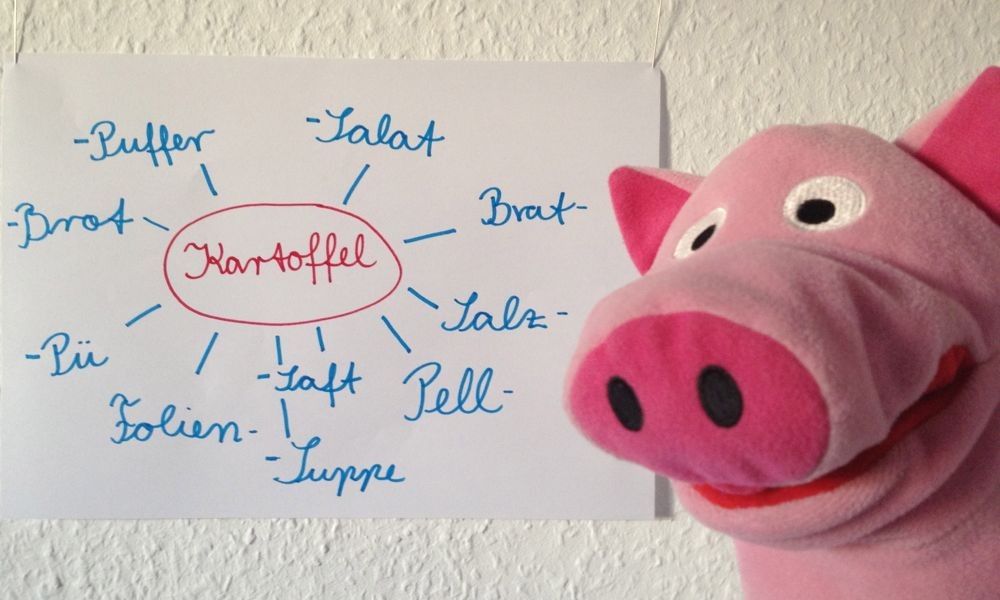 -Puffer
-Salat
-Brot
Brat-
Kartoffel
Salz-
-Pü
-Saft
Pell-
Folien-
-Suppe